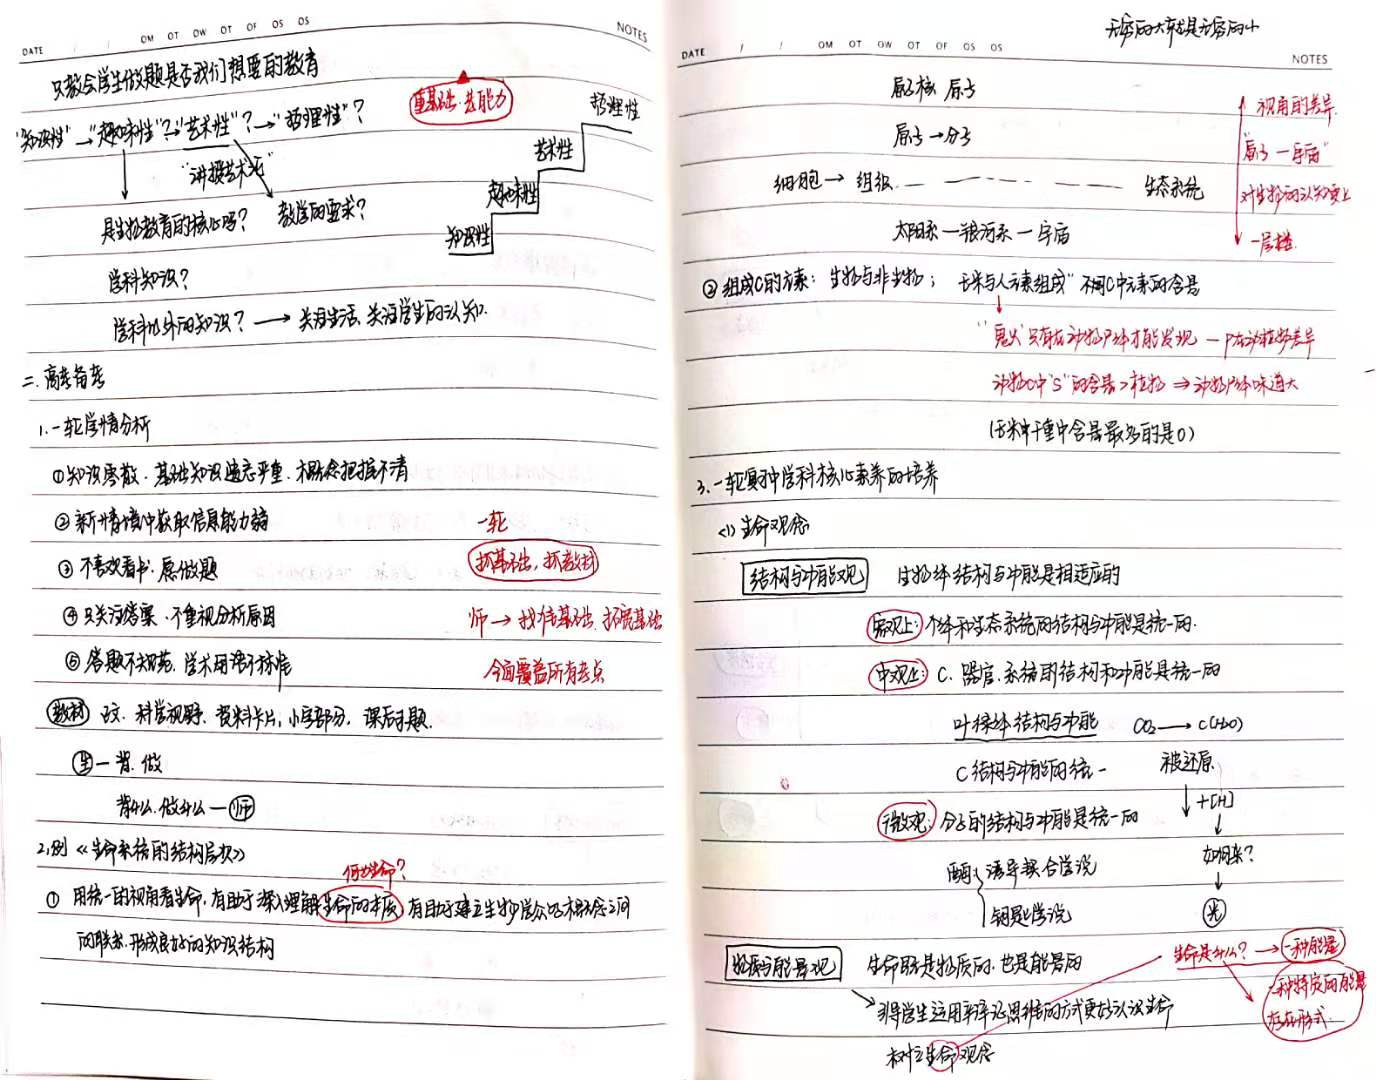 DATE / / OM OT OW OT OF OS OS NOTES
只教会学生做题是否我们想要的教育
"知识性"→"趣味性"?→"艺术性"?→"哲理性"?
重基础·去能力
哲理性
艺术性
趣味性
知识性
"讲授艺术形"
是生物教育的核心吗? 教学的要求?
学科知识?
学科以外的知识?→关注生活、关注学生的认知.
二.高考备考
1.一轮学情分析
①知识零散.基础知识遗忘严重.概念把握不清
②新情境中获取信息能力弱 一轮
③不喜欢看书.愿做题 抓基础,抓教材
④只关注答案.不重视分析原因 师→找准基础.拓宽基础
⑤答题不规范.学术用语不标准 全面覆盖所有考点
教材 正文.科学视野.资料卡片,小字部分,课后习题.
生一背.做
背什么.做什么—师
2.例《生命系统的结构层次》
何为生命?
①用统一的视角看生命,有助于深入理解生命的本质,有助于建立生物学众多概念之间
的联系.形成良好的知识结构
无穷的大就是无穷的小
DATE / / OM OT OW OT OF OS OS NOTES
原子核 原子
视角的差异.
原子→分子
"原子一宇宙"
细胞→组织 生态系统
对生物的认知更上
太阳系一银河系一宇宙
一层楼.
②组成C的元素: 生物与非生物; "玉米与人元素组成" 不同C中元素的含量
"鬼火"只有在动物尸体才能发现 — P在动植物差异
动物C中"S"的含量>植物⇒动物尸体味道大
(玉米中干重中含量最多的是O)
3.一轮复习中学科核心素养的培养
<1>生命观念
结构与功能观 生物体结构与功能是相适应的
宏观上: 个体和生态系统的结构与功能是统一的.
中观上: C、器官.系统的结构和功能是统一的
叶绿体结构与功能 CO₂→C(H₂O)
C结构与功能的统一 被还原
微观: 分子的结构与功能是统一的 +[H]
酶 诱导契合学说 如何来?
钥匙学说 光
物质与能量观 生命既是物质的.也是能量的
生命是什么?→一种能量
一种特定的能量
存在形式.
引导学生运用辩证思维的方式更好认识生命
树立生命观念